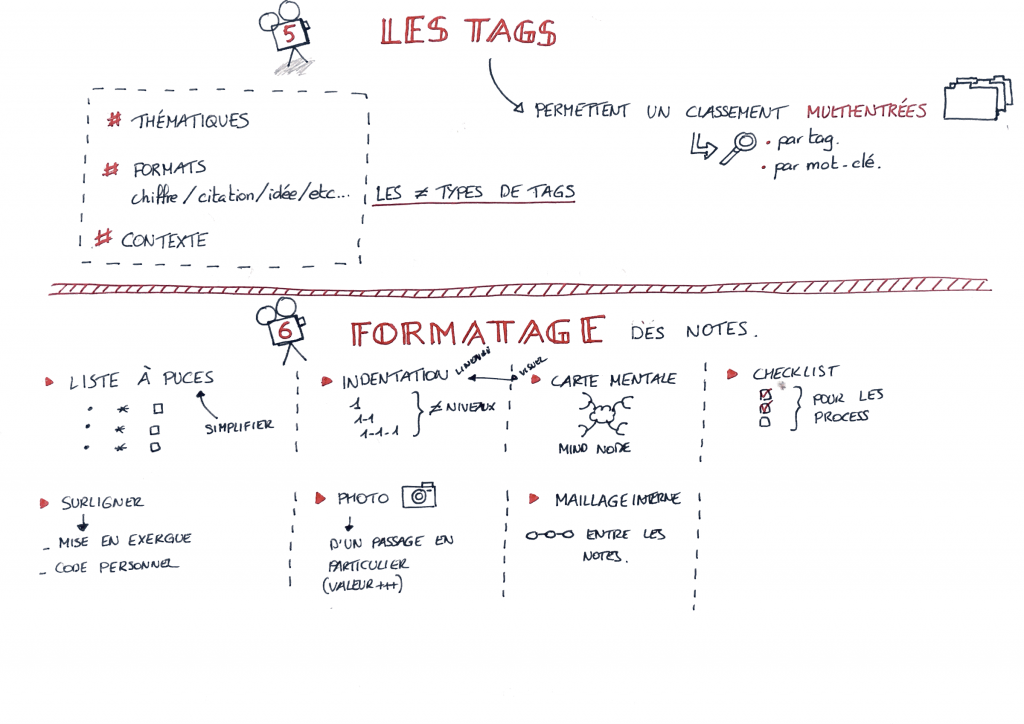 5
LES TAGS
PERMETTENT UN CLASSEMENT MULTIENTRÉES
• par tag.
• par mot-clé.
# THÉMATIQUES
# FORMATS
chiffre/citation/idée/etc...
# CONTEXTE
LES ≠ TYPES DE TAGS
6
FORMATTAGE DES NOTES.
LISTE À PUCES
SIMPLIFIER
INDENTATION
LINÉAIRE
VISUEL
1
1-1
1-1-1
≠ NIVEAUX
CARTE MENTALE
MIND NODE
CHECKLIST
POUR LES
PROCESS
SURLIGNER
- MISE EN EXERGUE
- CODE PERSONNEL
PHOTO
D'UN PASSAGE EN
PARTICULIER
(VALEUR+++)
MAILLAGE INTERNE
ENTRE LES
NOTES.